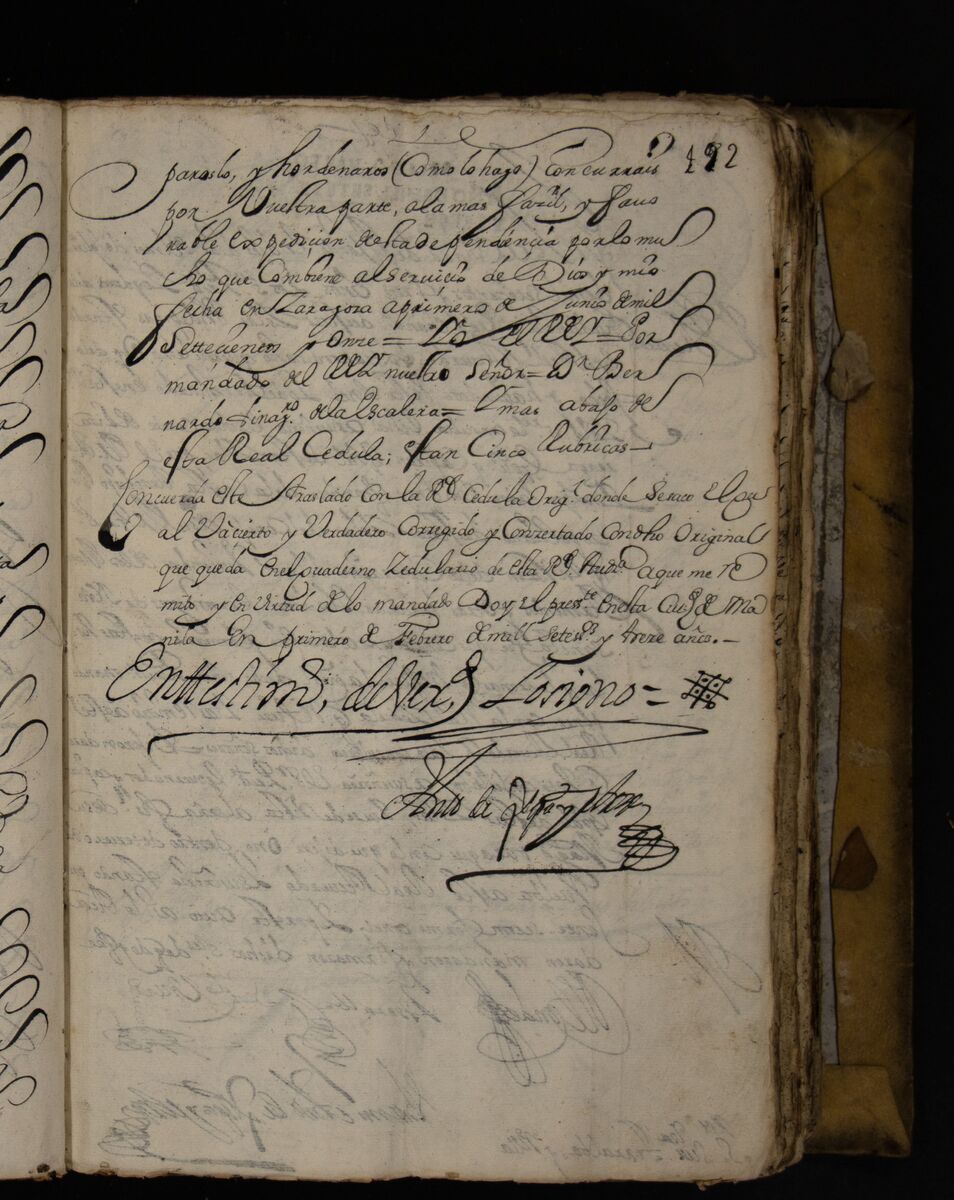 192
paroslo, y hordenaros (Como lo hago) concurrais
por Vuestra parte, a la mas façil, y favo
rable expediçion desta dependençia por lo mu
cho que Combiene al serviçio de Dios y mio
fecha en Zaragoza a primero de Junio de mil
Settecientos y onze = Yo el REY = Por
mandado del REY nuestro señor = Dn Ber
nardo tinagro. de la Escalera = Y mas abajo de
esta Real Cedula; estan Cinco Rubricas —
Concuerda este traslado con la Rl Cedula Origl donde se saco el qu
al Va cierto y Verdadero Corregido y Conzertado Con dho Original
que queda en el quaderno Zedulario de esta Rl Auda a que me re
mito y en virtud de lo mandado Doy el presste en esta Ciud de Ma
nila en primero de Febrero de mill setesos y treze años. —
En testimo, de Verd Lo signo =
Anto de y